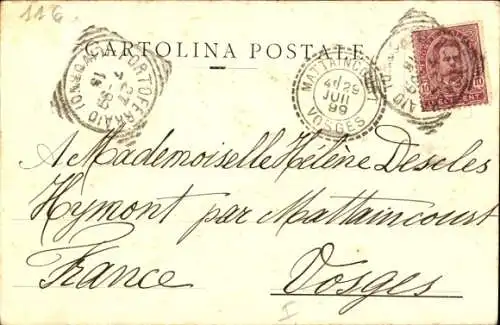 116
CARTOLINA POSTALE
PORTOFERRAIO
MATTAINCOURT
29
JUI
99
VOSGES
10
A Mademoiselle Hélène Descles
Hymont par Mattaincourt
France Vosges